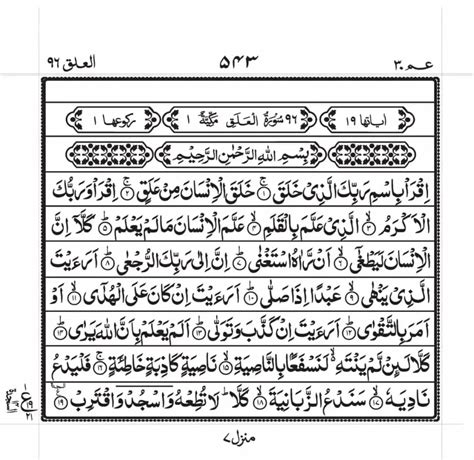 عـم ٣٠ ۵۴۳ العلق ٩٦
اٰیاتھا ١٩ ٩٦ سُوْرَةُ الْعَلَقِ مَكِّيَّةٌ ١ رکوعها ١
بِسْمِ اللّٰهِ الرَّحْمٰنِ الرَّحِيْمِ
اِقْرَاْ بِاسْمِ رَبِّكَ الَّذِيْ خَلَقَ ۚ﴿١﴾ خَلَقَ الْاِنْسَانَ مِنْ عَلَقٍ ۚ﴿٢﴾ اِقْرَاْ وَرَبُّكَ
الْاَكْرَمُ ۙ﴿٣﴾ الَّذِيْ عَلَّمَ بِالْقَلَمِ ۙ﴿٤﴾ عَلَّمَ الْاِنْسَانَ مَا لَمْ يَعْلَمْ ؕ﴿٥﴾ كَلَّاۤ اِنَّ
الْاِنْسَانَ لَيَطْغٰۤى ۙ﴿٦﴾ اَنْ رَّاٰهُ اسْتَغْنٰى ؕ﴿٧﴾ اِنَّ اِلٰى رَبِّكَ الرُّجْعٰى ؕ﴿٨﴾ اَرَءَيْتَ
الَّذِيْ يَنْهٰى ۙ﴿٩﴾ عَبْدًا اِذَا صَلّٰى ؕ﴿١٠﴾ اَرَءَيْتَ اِنْ كَانَ عَلَى الْهُدٰۤى ۙ﴿١١﴾ اَوْ
اَمَرَ بِالتَّقْوٰى ؕ﴿١٢﴾ اَرَءَيْتَ اِنْ كَذَّبَ وَتَوَلّٰى ؕ﴿١٣﴾ اَلَمْ يَعْلَمْ بِاَنَّ اللّٰهَ يَرٰى ؕ﴿١٤﴾
كَلَّا لَئِنْ لَّمْ يَنْتَهِ ۙ لَنَسْفَعًۢا بِالنَّاصِيَةِ ۙ﴿١٥﴾ نَاصِيَةٍ كَاذِبَةٍ خَاطِئَةٍ ۚ﴿١٦﴾ فَلْيَدْعُ
نَادِيَهٗ ۙ﴿١٧﴾ سَنَدْعُ الزَّبَانِيَةَ ۙ﴿١٨﴾ كَلَّا ؕ لَا تُطِعْهُ وَاسْجُدْ وَاقْتَرِبْ ۩﴿١٩﴾
ع ١٩ ٢١
السجدة
منزل ٧